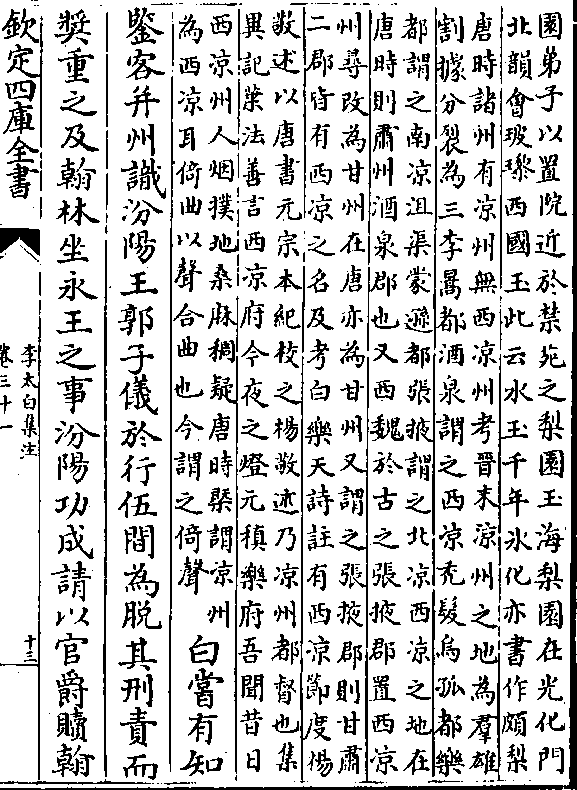 園弟子以置院近於禁苑之梨園玉海梨園在光化門
北韻會玻瓈西國玉此云水玉千年氷化亦書作頗梨
唐時諸州有凉州無西凉州考晉末凉州之地為羣雄
割據分裂為三李暠都酒泉謂之西凉禿髮烏孤都樂
都謂之南凉沮渠蒙遜都張掖謂之北凉西凉之地在
唐時則肅州酒泉郡也又西魏於古之張掖郡置西凉
州尋改為甘州在唐亦為甘州又謂之張掖郡則甘肅
二郡皆有西凉之名及考白樂天詩註有西凉節度楊
敬述以唐書元宗本紀校之楊敬述乃凉州都督也集
異記葉法善言西凉府今夜之燈元稹樂府吾聞昔日
西凉州人烟撲地桑麻稠疑唐時槩謂凉州
為西凉耳倚曲以聲合曲也今謂之倚聲
白嘗有知
鑒客并州識汾陽王郭子儀於行伍間為脱其刑責而
奬重之及翰林坐永王之事汾陽功成請以官爵贖翰
欽定四庫全書
李太白集注
卷三十一
十三